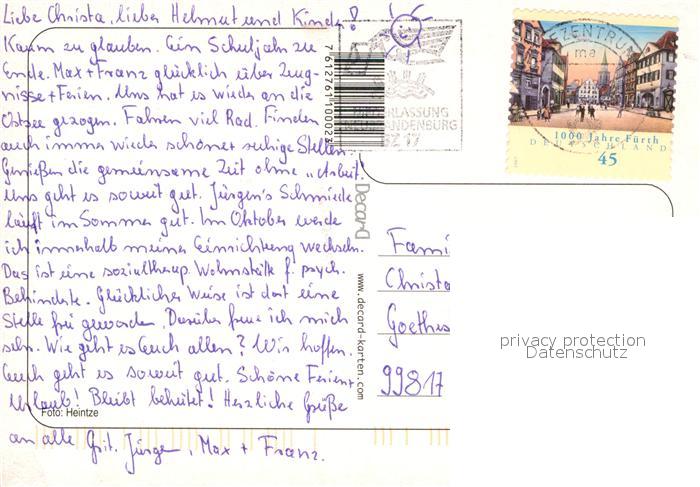 Liebe Christa, lieber Helmut und Kinder!
Kaum zu glauben. Ein Schuljahr zu
Ende. Max + Franz glücklich über Zeug-
nisse + Ferien. Uns hat es wieder an die
Ostsee gezogen. Fahren viel Rad. Finden
auch immer wieder schöne ruhige Stellen.
Genießen die gemeinsame Zeit ohne „Arbeit".
Uns geht es soweit gut. Jürgen's Schmiede
läuft im Sommer gut. Im Oktober werde
ich innerhalb meiner Einrichtung wechseln.
Das ist eine sozialtherap. Wohnstätte f. psych.
Behinderte. Glücklicher Weise ist dort eine
Stelle frei geworden. Darüber freue ich mich
sehr. Wie geht es Euch allen? Wir hoffen,
Euch geht es soweit gut. Schöne Ferien +
Urlaub! Bleibt behütet! Herzliche Grüße
an alle Grit, Jürgen, Max + Franz.
Foto: Heintze
7612761100027
Decard
www.decard-karten.com
EZENTRUM
ma
NIEDERLASSUNG
NEUBRANDENBURG
BZ 17
1000 Jahre Fürth
DEUTSCHLAND
45
Fami
Christa
Goethes
99817
privacy protection
Datenschutz